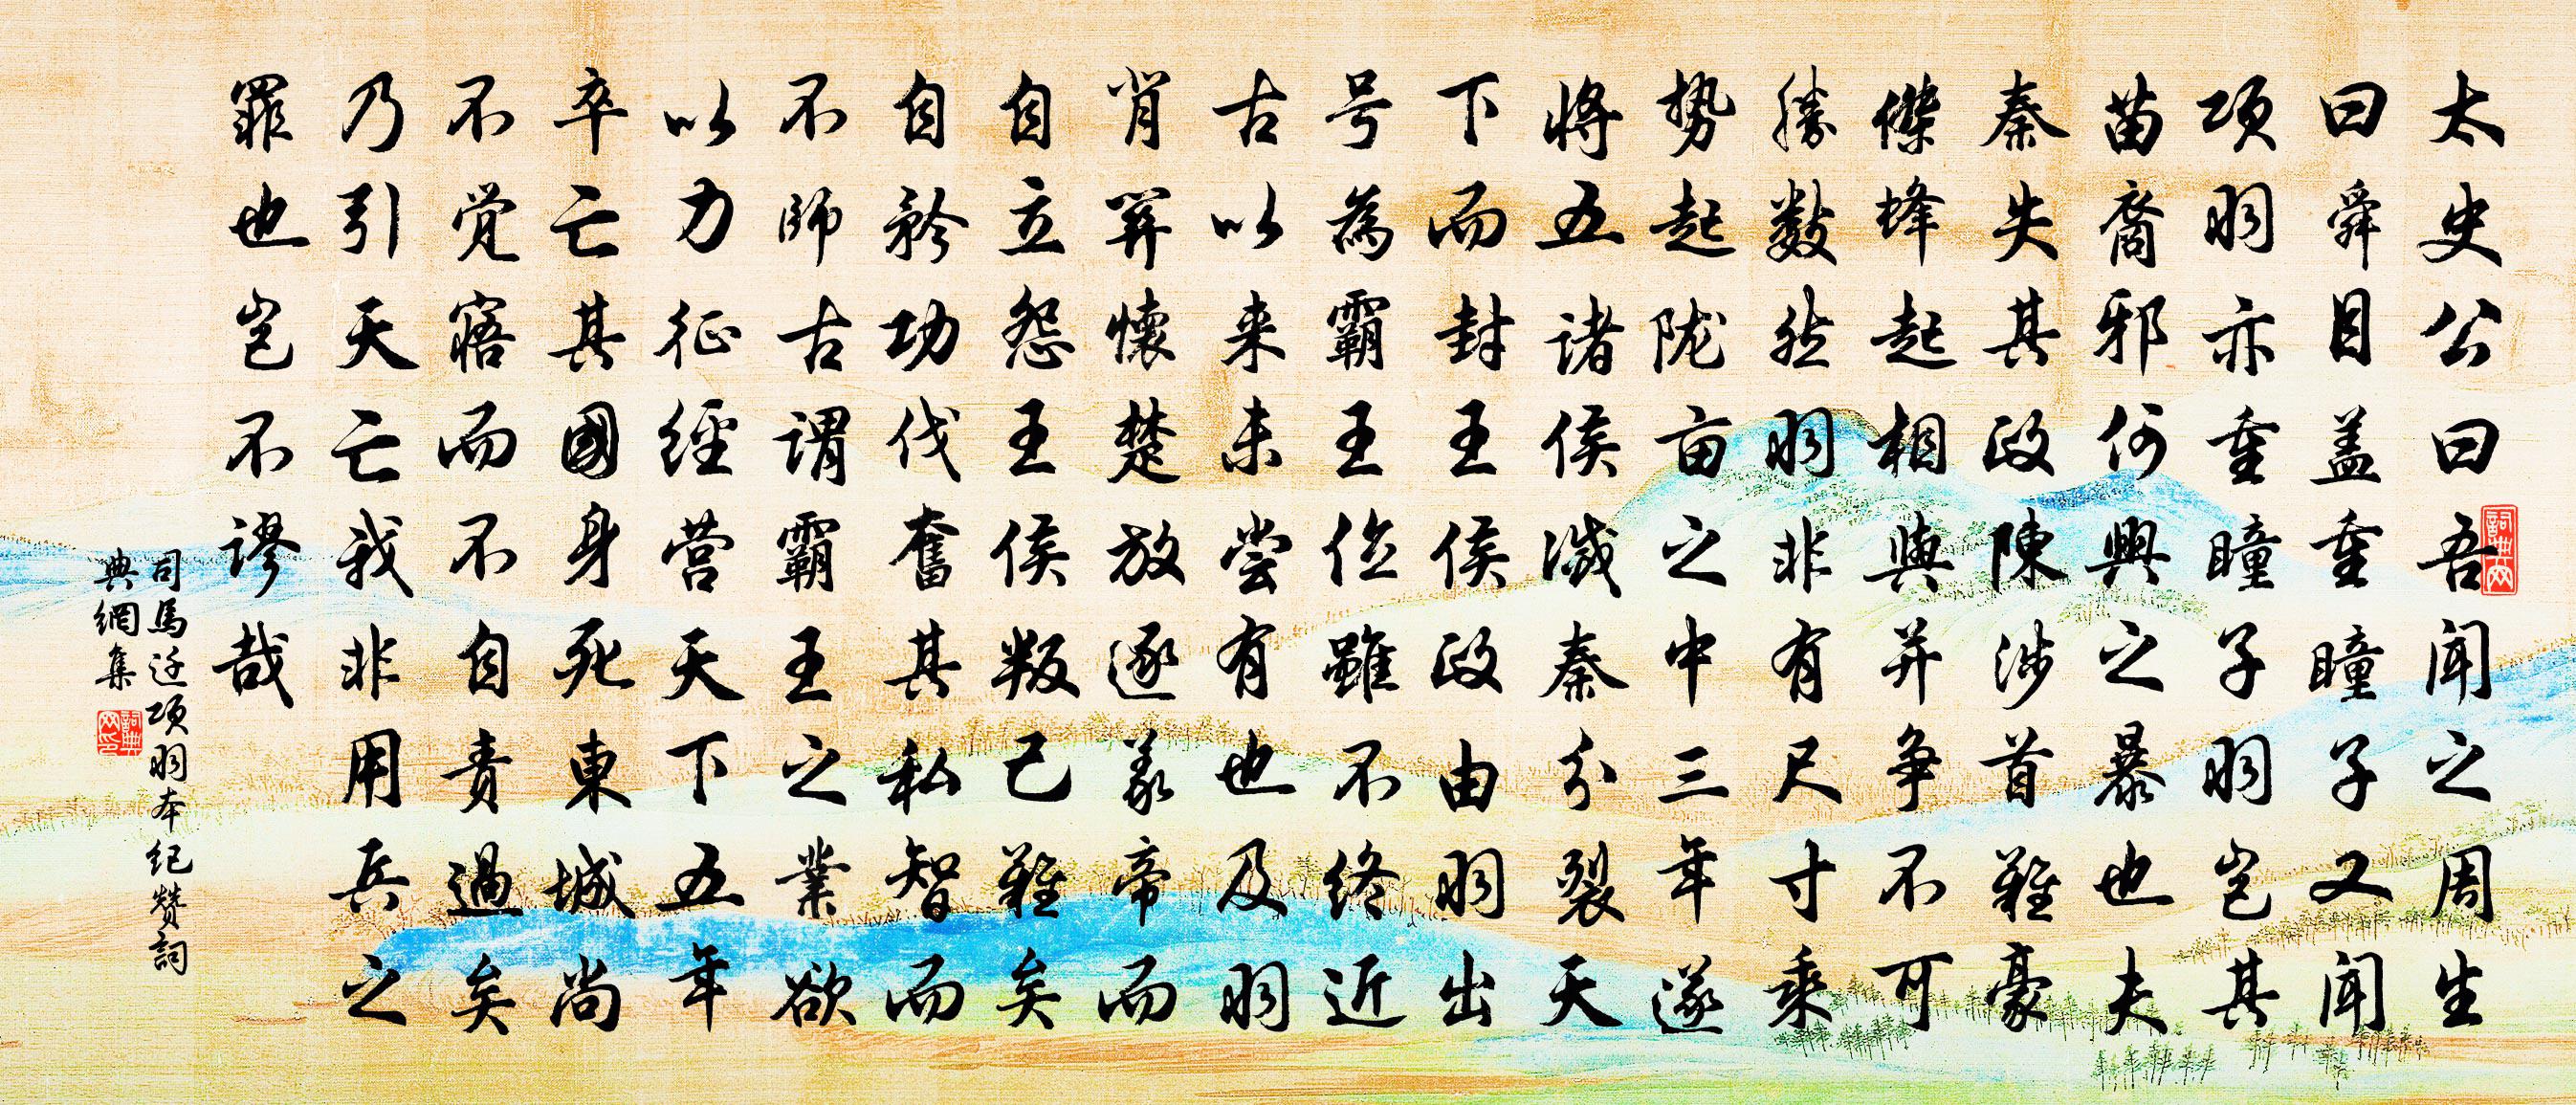 太史公曰吾聞之周生
曰舜目盖重瞳子又聞
项羽亦重瞳子羽岂其
苗裔邪何興之暴也夫
秦失其政陳涉首難豪
傑蜂起相與并争不可
勝数然羽非有尺寸乘
势起陇亩之中三年遂
将五诸侯滅秦分裂天
下而封王侯政由羽出
号為霸王位雖不终近
古以来未尝有也及羽
背関懷楚放逐義帝而
自立怨王侯叛己難矣
自矜功伐奮其私智而
不師古謂霸王之業欲
以力征經营天下五年
卒亡其國身死東城尚
不觉寤而不自责過矣
乃引天亡我非用兵之
罪也岂不谬哉
司馬迁项羽本纪赞詞
典網集
詞典網
詞典網印